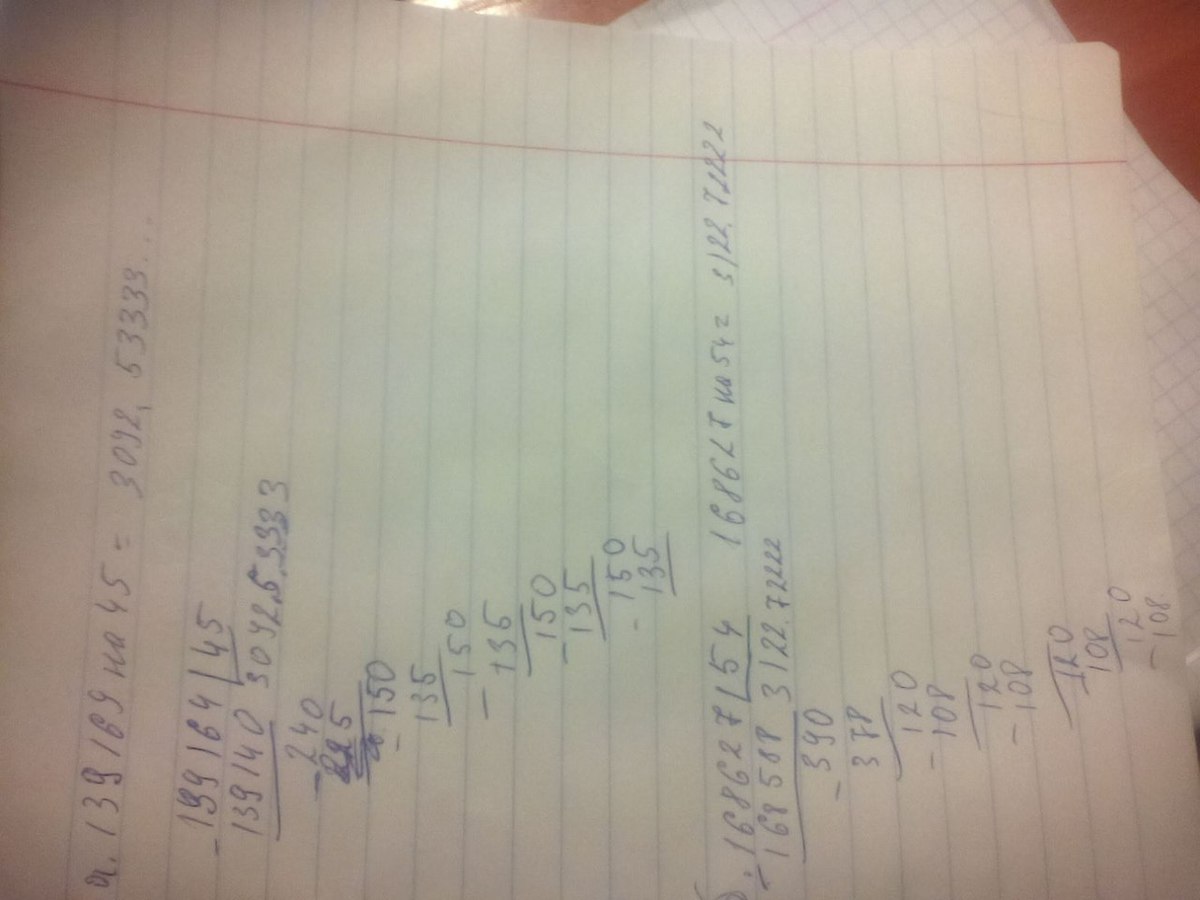 а. 139 169 на 45 = 3092, 53333...
- 139 164 | 45
139140 3092.5333
- 240
225
- 150
135
- 150
135
- 150
135
- 150
135
- 168627 | 54 168627 на 54 = 3122.72222
168588 3122.72222
- 390
378
- 120
108
- 120
108
120
108
- 120
108